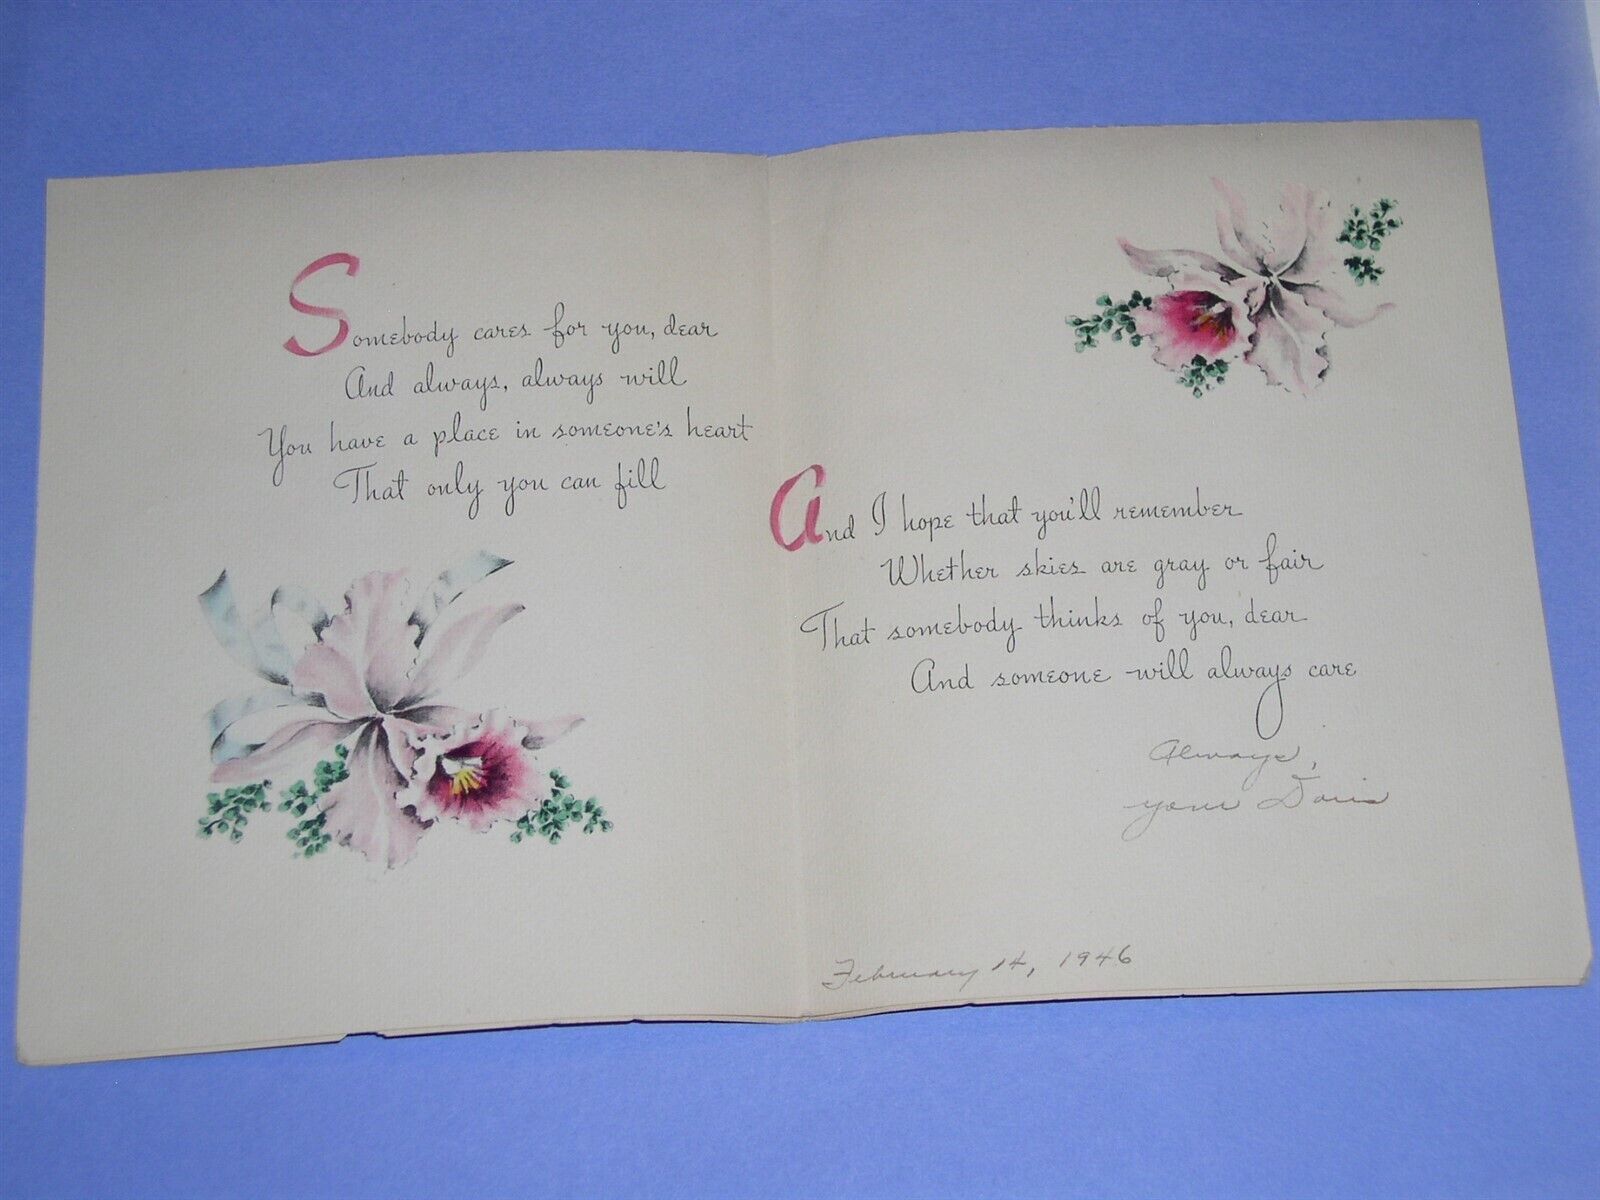 Somebody cares for you, dear
And always, always will
You have a place in someone's heart
That only you can fill
And I hope that you'll remember
Whether skies are gray or fair
That somebody thinks of you, dear
And someone will always care
Always,
your Doris
February 14, 1946